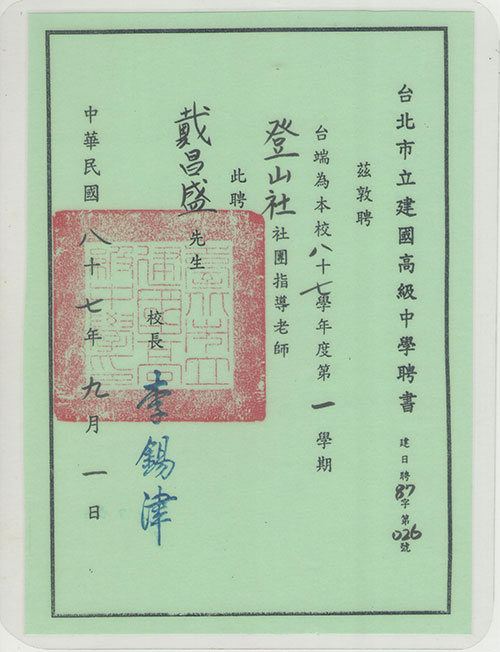 台北市立建國高級中學聘書
建日聘87字第026號
茲敦聘
台端為本校八十七學年度第一學期
登山社社團指導老師
此聘
戴昌盛先生
校長李錫津
中華民國八十七年九月一日